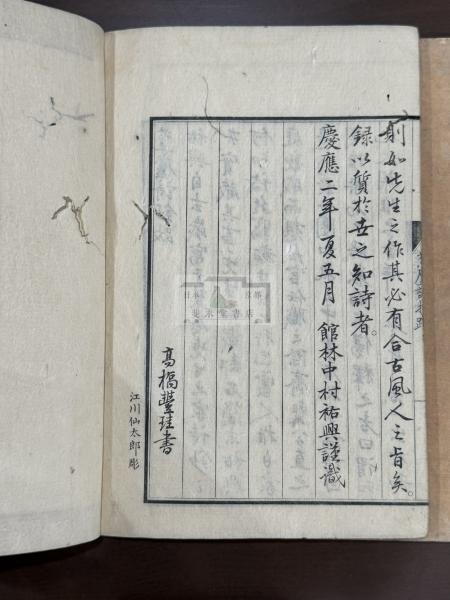 則如先生之作其必有合古風人之旨矣。
録以質於世之知詩者。
慶應二年夏五月　館林中村祐興謹識
高橋豐珪書
江川仙太郎彫